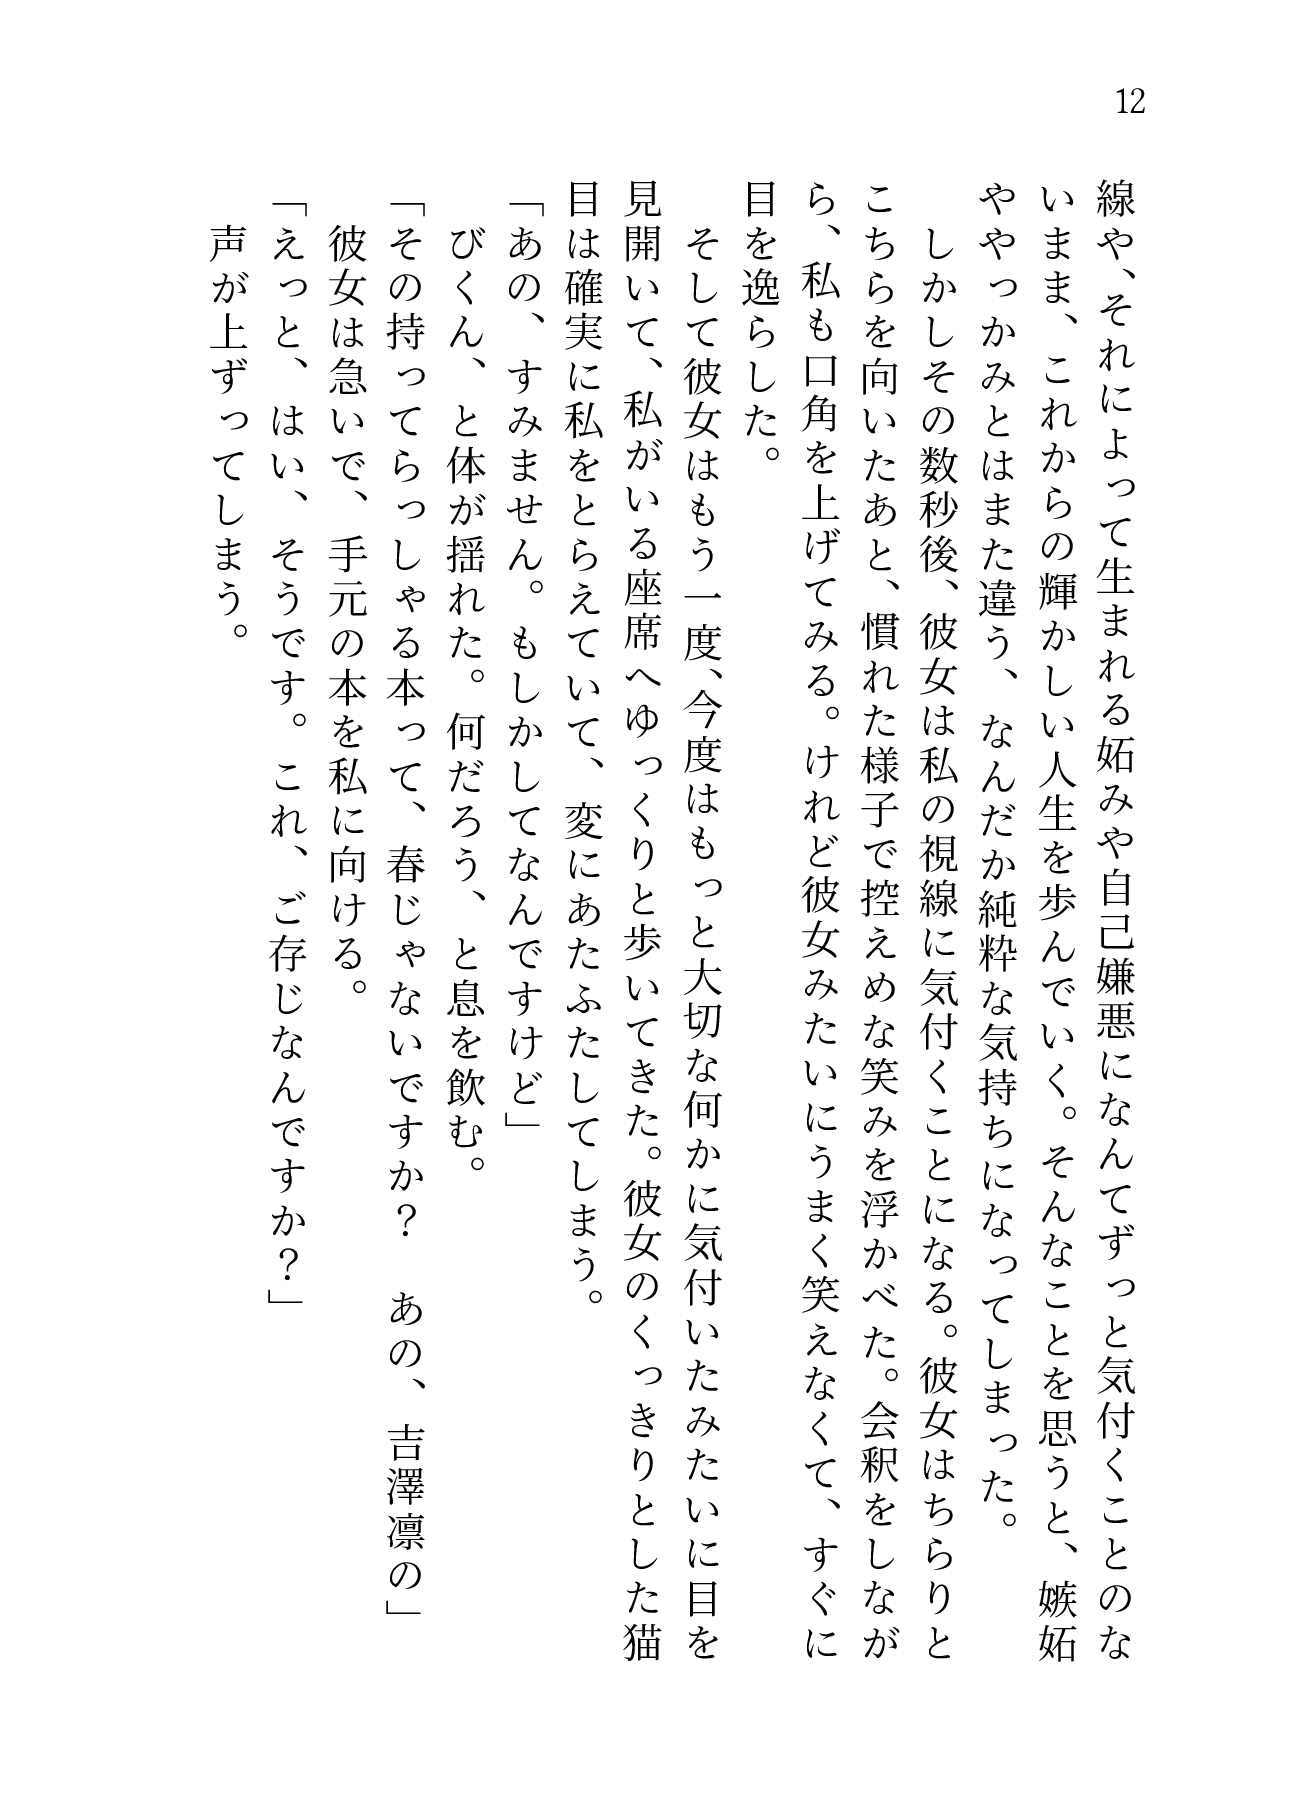 12
線や、それによって生まれる妬みや自己嫌悪になんてずっと気付くことのな
いまま、これからの輝かしい人生を歩んでいく。そんなことを思うと、嫉妬
ややっかみとはまた違う、なんだか純粋な気持ちになってしまった。
　しかしその数秒後、彼女は私の視線に気付くことになる。彼女はちらりと
こちらを向いたあと、慣れた様子で控えめな笑みを浮かべた。会釈をしなが
ら、私も口角を上げてみる。けれど彼女みたいにうまく笑えなくて、すぐに
目を逸らした。
　そして彼女はもう一度、今度はもっと大切な何かに気付いたみたいに目を
見開いて、私がいる座席へゆっくりと歩いてきた。彼女のくっきりとした猫
目は確実に私をとらえていて、変にあたふたしてしまう。
「あの、すみません。もしかしてなんですけど」
　びくん、と体が揺れた。何だろう、と息を飲む。
「その持ってらっしゃる本って、春じゃないですか？　あの、吉澤凛の」
　彼女は急いで、手元の本を私に向ける。
「えっと、はい、そうです。これ、ご存じなんですか？」
　声が上ずってしまう。